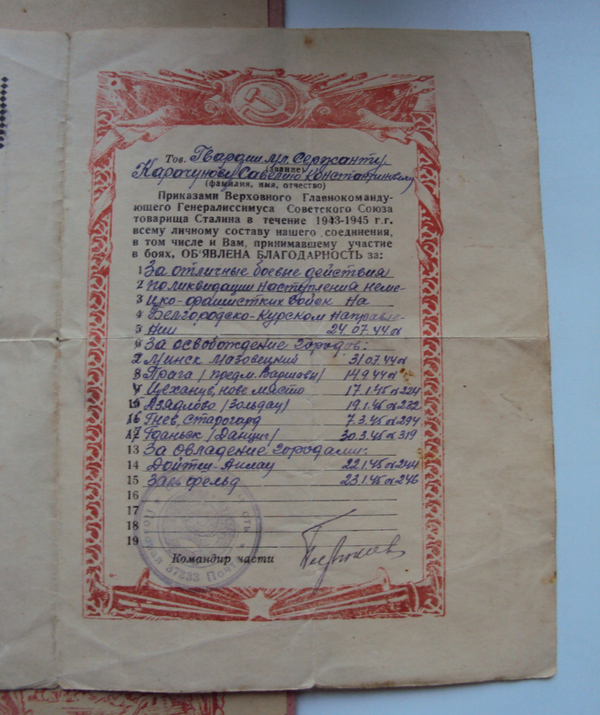 Тов. Гвардии мл. Сержанту
(звание)
Карачунову Савелию Константиновичу
(фамилия, имя, отчество)
Приказами Верховного Главнокоманду-
ющего Генералиссимуса Советского Союза
товарища Сталина в течение 1943-1945 г.г.
всему личному составу нашего соединения,
в том числе и Вам, принимавшему участие
в боях, ОБ'ЯВЛЕНА БЛАГОДАРНОСТЬ за:
1 За отличные боевые действия
2 по ликвидации наступления неме-
3 цко-фашистких войск на
4 Белгородско-Курском направле-
5 нии 24.07.44г
6 За освобождение городов:
7 Минск Мазовецкий 31.07.44г
8 Прага (предм. Варшавы) 14.9.44г
9 Цеханув, нове място 17.1.45г 224
10 Дзялдово (Зольдау) 19.1.45г 232
11 Гнев, Старогард 7.3.45г 294
12 Гданьск (Данциг) 30.3.45г 319
13 За овладение городами:
14 Дойтш-Айлау 22.1.45г 244
15 Заальфельд 23.1.45г 246
16
17
18
19
Командир части
Полевая Почта
37233